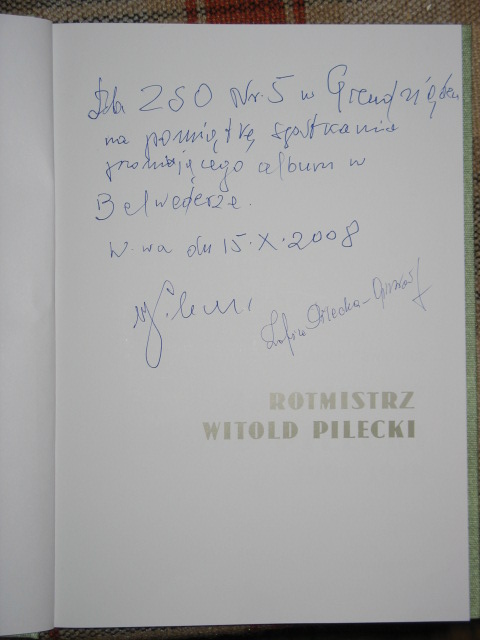 Dla ZSO Nr. 5 w Grudziądzu
na pamiątkę spotkania
promującego album w
Belwederze.
W-wa dn 15.X.2008
Zofia Pilecka-Optułowicz
ROTMISTRZ
WITOLD PILECKI